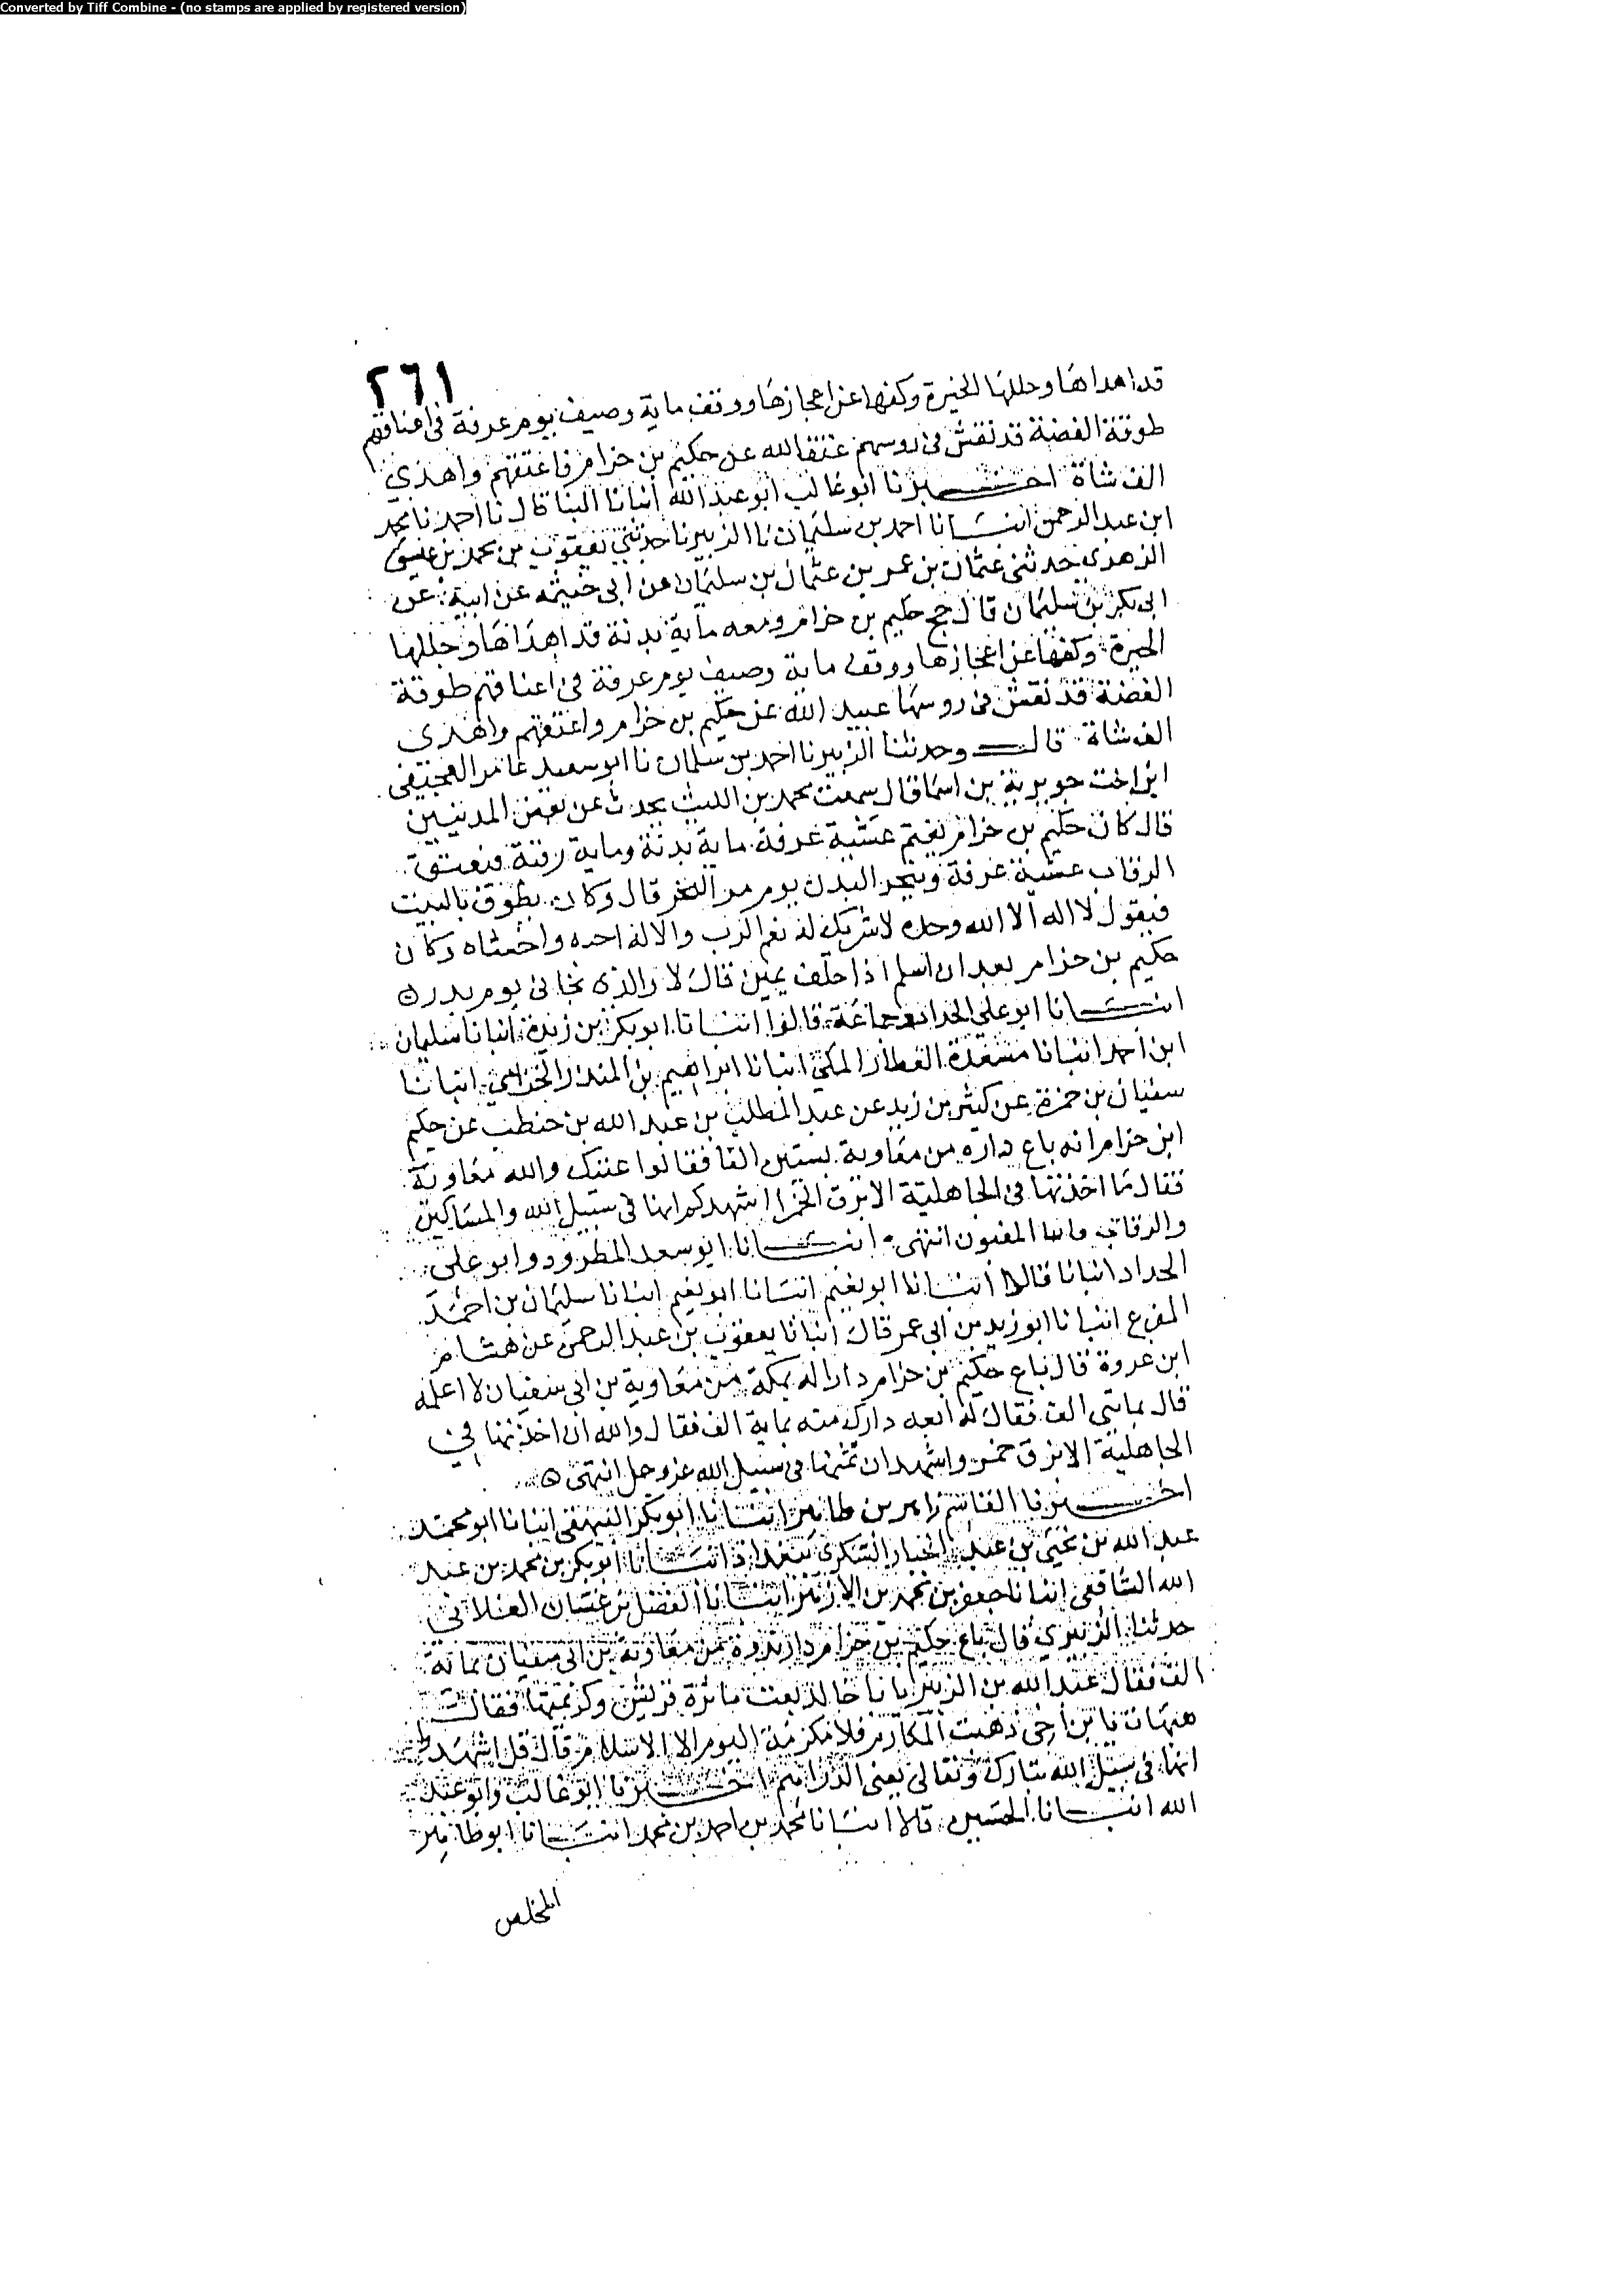 Converted by Tiff Combine - (no stamps are applied by registered version)
٢٦١
قد اهداها وجللها الحبرة وكفها عن اعجازها ووقف ماية وصيف يوم عرفة فى اعناقهم
طوقة الفضة قد نقش فى روسهم عتقا لله عن حكيم بن حزام فاعتقهم واهدى
الف شاة اخبرنا ابو غالب ابو عبد الله انبانا البنا قال نا احمد نا محمد
ابن عبد الرحمن انبانا احمد بن سليمان نا الزبير نا حدثنى يعقوب بن محمد بن عيسى
الزهرى حدثنى عثمان بن عمر بن عثمان بن سليمان من ابى خيثمه عن ابيه عن
ابى بكر بن سليمان قال حج حكيم بن حزام ومعه ماية بدنة قد اهداها وجللها
الحبرة وكفها عن اعجازها ووقف ماية وصيف يوم عرفة فى اعناقهم طوقة
الفضة قد نقش فى روسها عبيد الله عن حكيم بن حزام واعتقهم واهدى
الف شاة قال وحدثنا الزبير نا احمد بن سلمان نا ابو سعيد عامر
ابن اخت جويرية بن اسما قال سمعت محمد بن الليث يحدث عن بعض المدنيين
قال كان حكيم بن حزام يقيم عشية عرفة ماية بدنة وماية رقبة فيعتق
الرقاب عشية عرفة وينحر البدن يوم النحر قال وكان يطوف بالبيت
فيقول لا اله الا الله وحده لا شريك له نعم الرب والاله احبه واخشاه وكان
حكيم بن حزام بعد ان اسلم اذا حلف يمين قال لا والذى نجانى يوم بدر
انبانا ابو على الحداد جماعة قالوا انبانا ابو بكر بن زيدة انبانا سليمان
ابن احمد انبانا مسعدة العطار المكى انبانا ابراهيم بن المنذر الحزامى انبانا
سفيان بن حمزة عن كثير بن زيد عن عبد المطلب بن عبد الله بن حنطب عن حكيم
ابن حزام انه باع داره من معاوية بستين الفا فقالوا غبنك والله معاوية
فقال ما اخذتها فى الجاهلية الا بزق الخمر اشهدكم انها فى سبيل الله والمساكين
والرقاب واينا المغبون انتهى انبانا ابو سعد المطرود وابو على
الحداد انبانا قالا انبانا ابو نعيم انبانا ابو نعيم انبانا سليمان بن احمد
المفرع انبانا ابو زيد بن ابى عمر قال انبانا يعقوب بن عبد الرحمن عن هشام
ابن عروة قال باع حكيم بن حزام دارا له بمكة من معاوية بن ابى سفيان لا اعلمه
قال بمايتى الف فقال له ابعه دارك منه بماية الف فقال والله ان اخذتها فى
الجاهلية الا بزق خمر واشهد ان ثمنها فى سبيل الله عز وجل انتهى
اخبرنا القاسم زاهر بن طاهر انبانا ابو بكر البيهقى انبانا ابو محمد
عبد الله بن يحيى بن عبد الجبار السكرى ببغداد انبانا ابو بكر بن محمد بن عبد
الله الشافعى انبانا جعفر بن محمد بن الازهر انبانا الفضل بن غسان الغلابى
حدثنا الزبيرى قال باع حكيم بن حزام دار ندوة من معاوية بن ابى سفيان بماية
الف فقال عبد الله بن الزبير يابا خالد بعت ماثرة قريش وكريمتها فقال
هيهات يا بن اخى ذهبت المكارم فلا مكرمة اليوم الا الاسلام قال قل اشهد
انها فى سبيل الله تبارك وتعالى يعنى الدراهم اخبرنا ابو غالب وابو عبد
الله انبانا الحسين قالا انبانا محمد بن احمد بن محمد انبانا ابو طاهر
المخلص